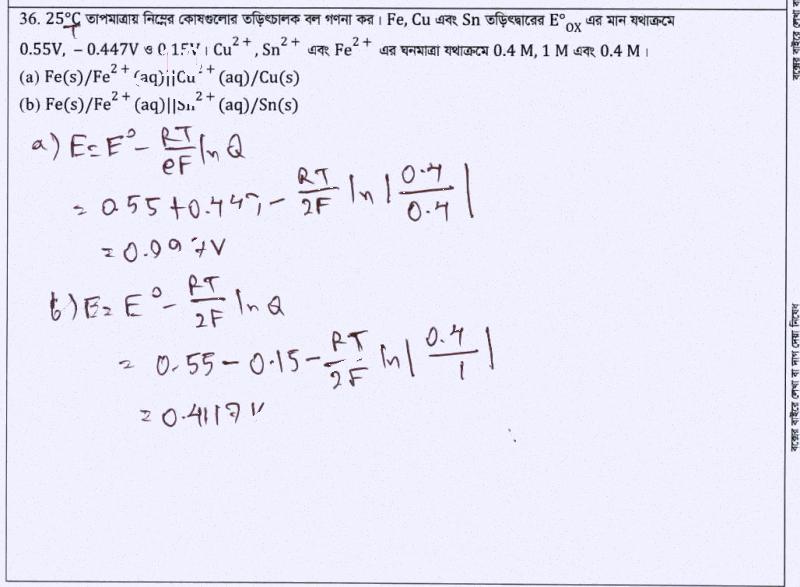 36. 25°C তাপমাত্রায় নিম্নের কোষগুলোর তড়িৎচালক বল গণনা কর। Fe, Cu এবং Sn তড়িৎদ্বারের E°ox এর মান যথাক্রমে
0.55V, – 0.447V ও 0.15V। Cu²⁺, Sn²⁺ এবং Fe²⁺ এর ঘনমাত্রা যথাক্রমে 0.4 M, 1 M এবং 0.4 M।
(a) Fe(s)/Fe²⁺(aq)||Cu²⁺(aq)/Cu(s)
(b) Fe(s)/Fe²⁺(aq)||Sn²⁺(aq)/Sn(s)
a) E = E° - RT/eF ln Q
= 0.55 + 0.447 - RT/2F ln |0.4/0.4|
= 0.997V
b) E = E° - RT/2F ln Q
= 0.55 - 0.15 - RT/2F ln |0.4/1|
= 0.4117 V
বক্সের বাইরে লেখা বা
বক্সের বাইরে লেখা বা দাগ দেয়া নিষেধ